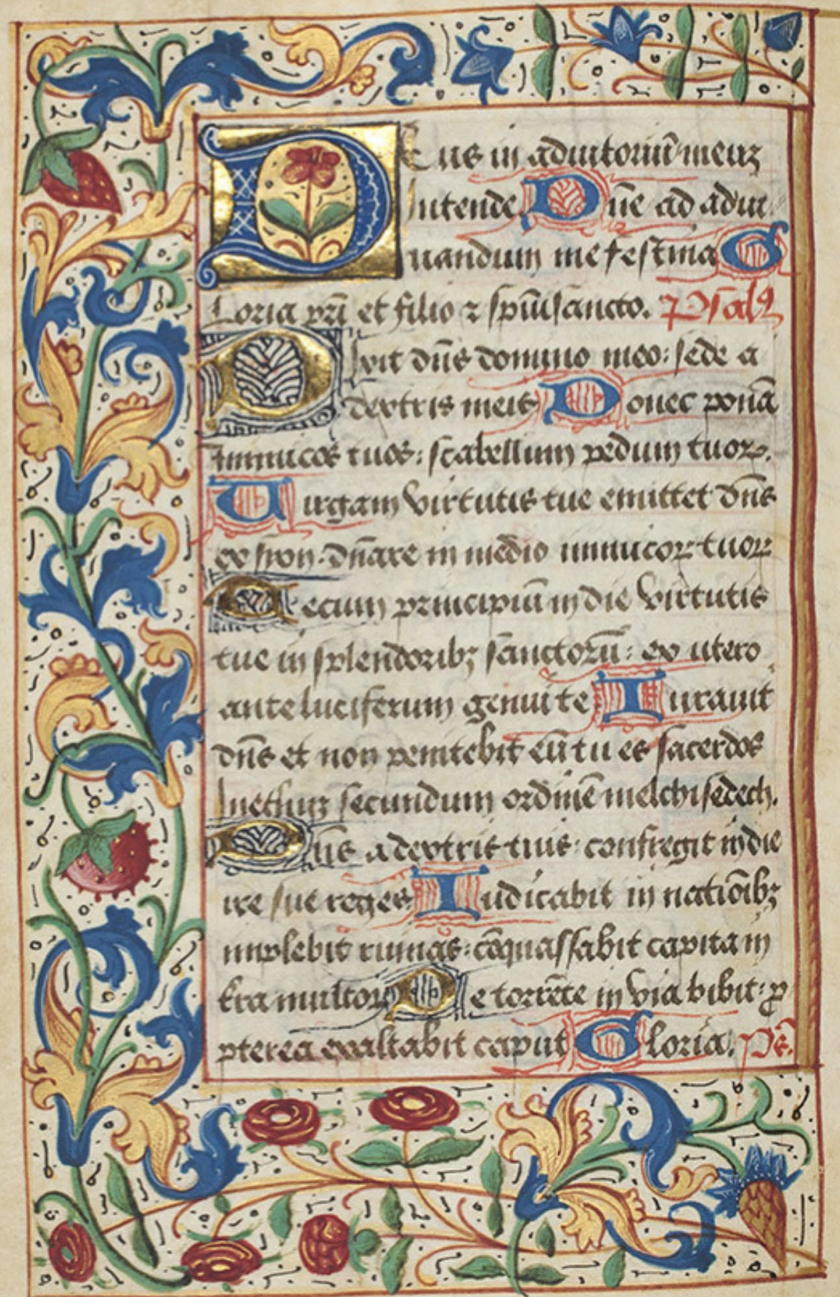 Deus in adiutoriū meuz
intende. Dn̄e ad adiu
uandum me festina G
loria pr̄i et filio ⁊ spūisancto. Psalꝰ
Dixit dn̄s domino meo: sede a
dextris meis Donec ponā
inimicos tuos: scabellum pedum tuoꝝ.
Uirgam virtutis tue emittet dn̄s
ex sion: dn̄are in medio inimicoꝝ tuoꝝ
Tecum principiū in die virtutis
tue in splendoribꝫ sanctorū: ex utero
ante luciferum genui te Iurauit
dn̄s et non penitebit eū tu es sacerdos
inethuz secundum ordinē melchisedech.
Dn̄s a dextris tuis: confregit in die
ire sue reges Iudicabit in natiōibꝫ
implebit ruinas: cōquassabit capita in
tr̄a multoꝝ De torrēte in via bibit: ꝓ
pterea exaltabit caput Gloria. ps̄.